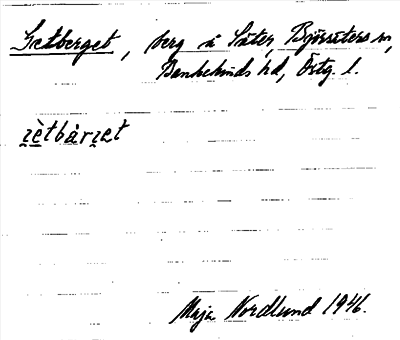 Getberget, berg å Säter, Björsäters sn,
Bankekinds hd, Östg. l.
Maja Nordlund 1946.